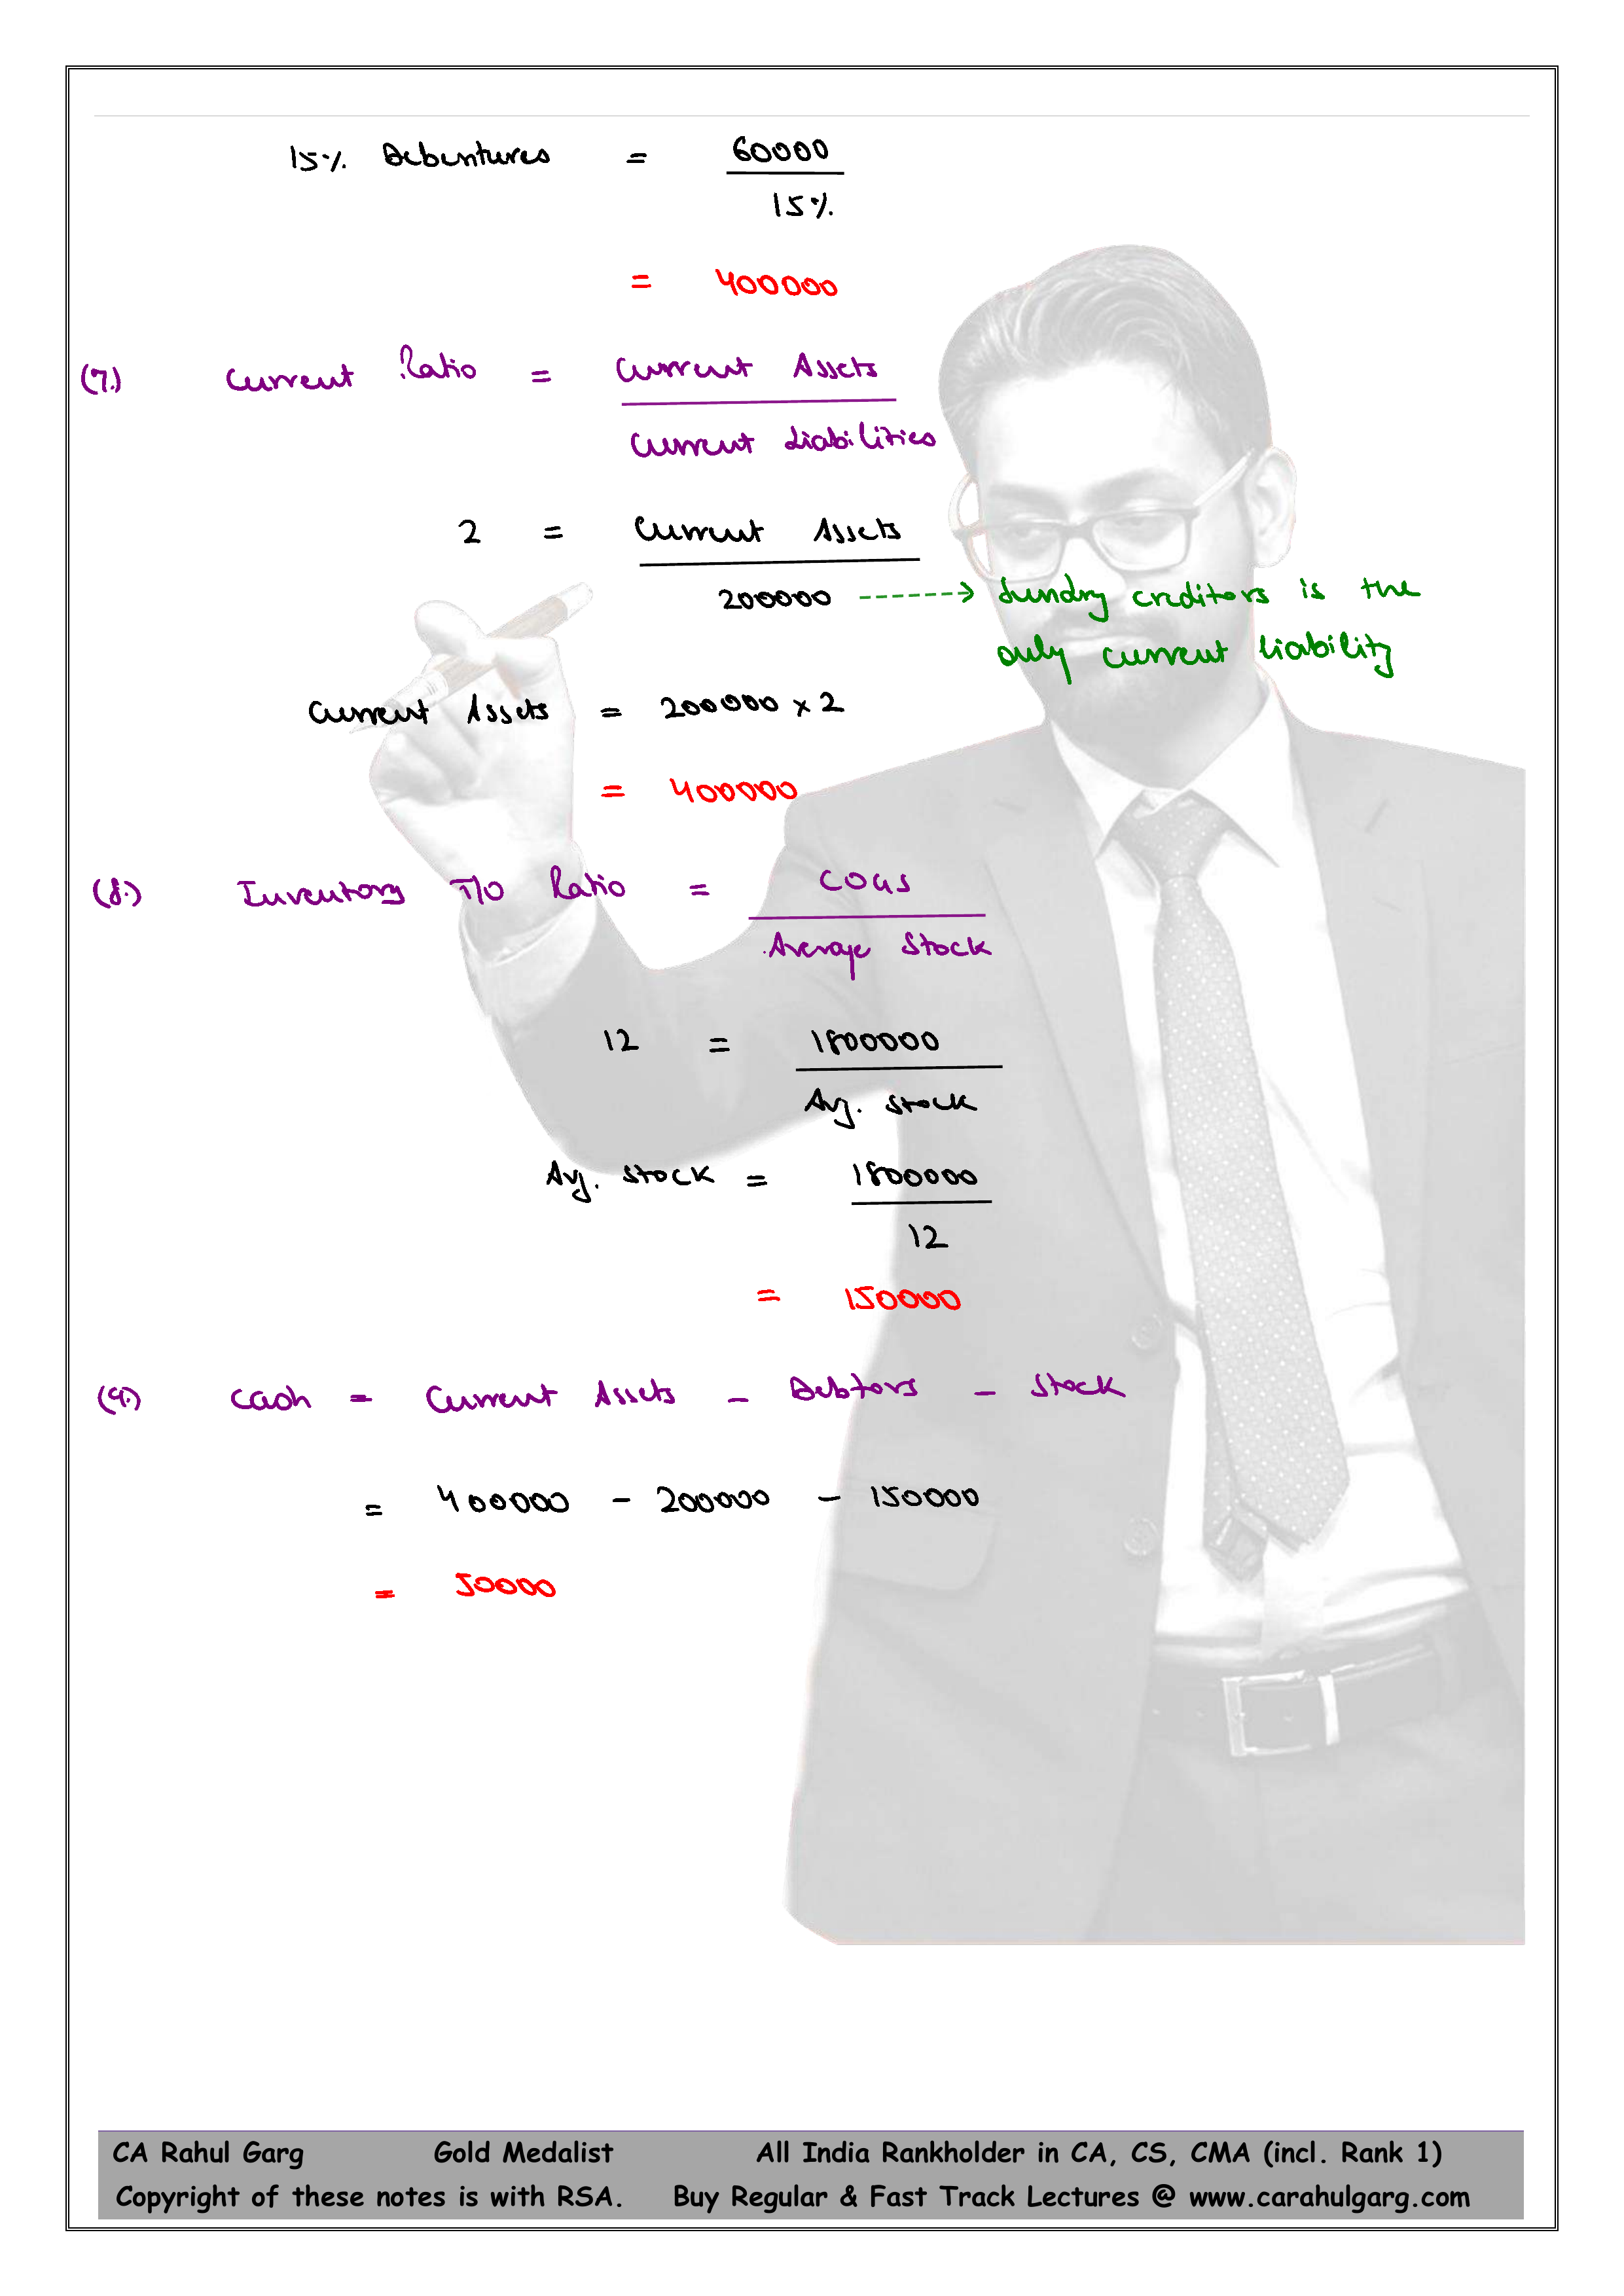 15% Debentures = 60000
15%
= 400000
(7.) Current Ratio = Current Assets
Current Liabilities
2 = Current Assets
200000 ------> Sundry creditors is the
only current liability
Current Assets = 200000 x 2
= 400000
(8.) Inventory T/O Ratio = COGS
Average Stock
12 = 1800000
Avg. Stock
Avg. Stock = 1800000
12
= 150000
(9.) Cash = Current Assets - Debtors - Stock
= 400000 - 200000 - 150000
= 50000
CA Rahul Garg Gold Medalist All India Rankholder in CA, CS, CMA (incl. Rank 1)
Copyright of these notes is with RSA. Buy Regular & Fast Track Lectures @ www.carahulgarg.com